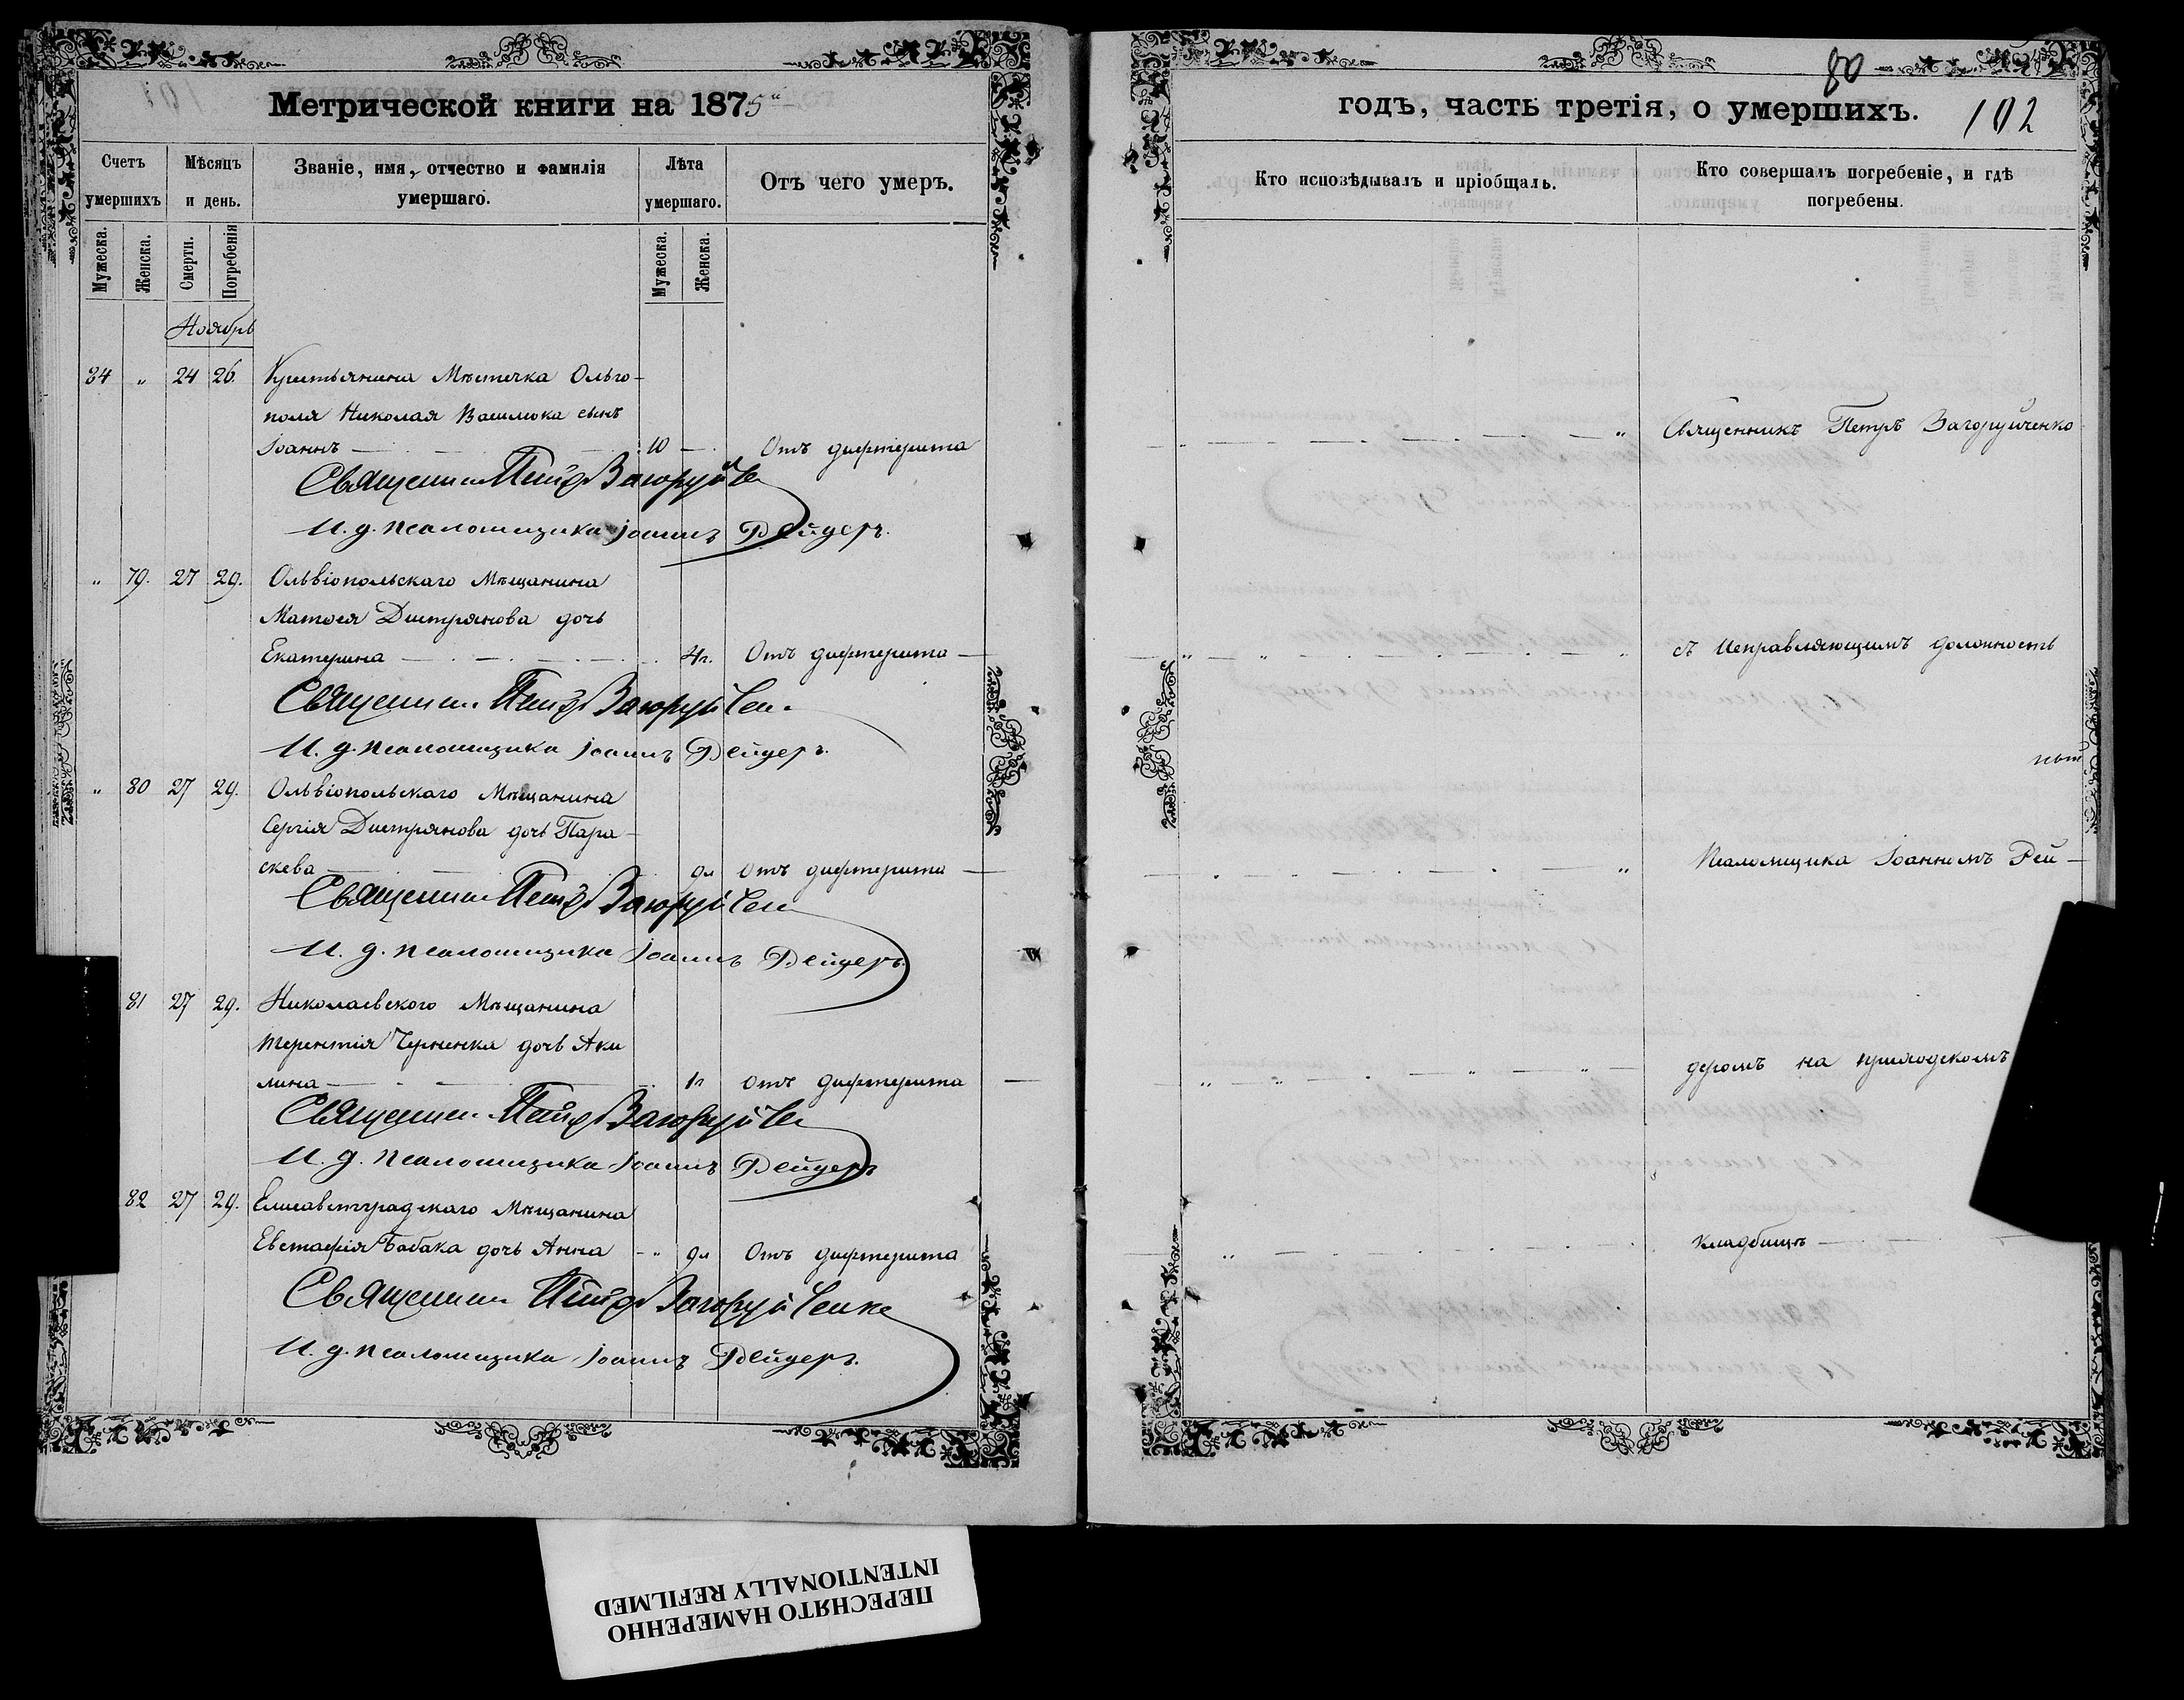 Метрической книги на 1875й
Счетъ умершихъ
Мѣсяцъ и день.
Званіе, имя, отчество и фамилія умершаго.
Лѣта умершаго.
Отъ чего умеръ.
Мужеска.
Женска.
Смерти.
Погребенія
Мужеска.
Женска.
Ноябрь
84 „ 24 26. Крестьянина Мѣстечка Ольго-
поля Николая Василюка сынъ
Іоаннъ — 10 — Отъ дифтерита
Священникъ Петръ Загоруйче
И. д. псаломщика Іоаннъ Рейдеръ.
„ 79. 27 29. Ольвіопольскаго Мѣщанина
Матѳея Дмитрянова дочь
Екатерина — 4г. Отъ дифтерита —
Священник Петръ Загоруйчен
И. д. псаломщика Іоаннъ Рейдеръ.
„ 80 27 29. Ольвіопольскаго Мѣщанина
Сергія Дмитрянова дочь Пара-
скева — 9м Отъ дифтерита —
Священник Петръ Загоруйчен
И. д. псаломщика Іоаннъ Рейдеръ.
81 27 29. Николаевского Мѣщанина
Терентія Черненка дочь Аки
лина — 1г Отъ дифтерита —
Священник Петръ Загоруйче
И. д. псаломщика Іоаннъ Рейдеръ
82 27 29. Елисаветградскаго Мѣщанина
Евстафія Бабака дочь Анна - „ 9м Отъ дифтерита
Священник Петръ Загоруйченко
И. д. псаломщика Іоаннъ Рейдеръ.
80
годъ, часть третія, о умершихъ.
102
Кто исповѣдывалъ и пріобщалъ.
Кто совершалъ погребеніе, и гдѣ погребены.
Священникъ Петръ Загоруйченко
съ Исправляющимъ должность
Псаломщика Іоанномъ Рей-
деромъ на приходскомъ
кладбищѣ —
ПЕРЕСНЯТО НАМЕРЕННО
INTENTIONALLY REFILMED